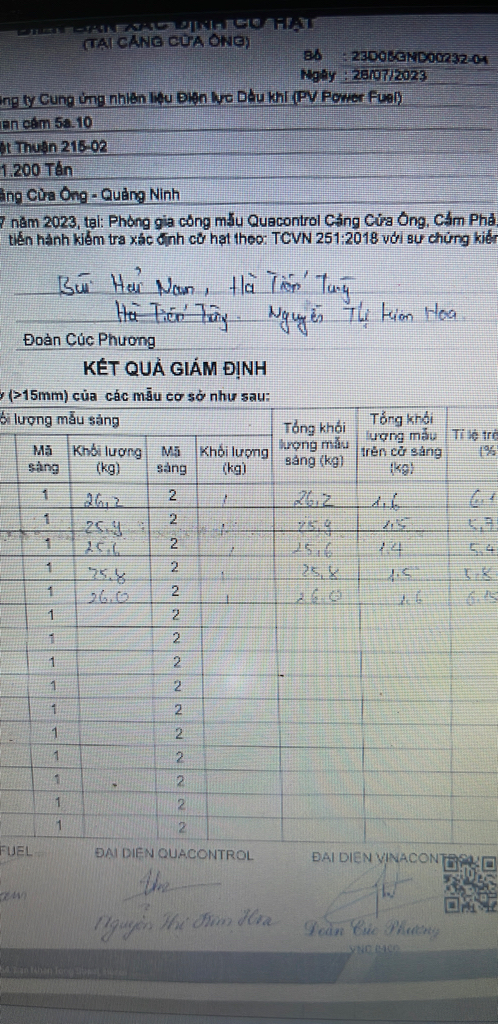 BIÊN BẢN XÁC ĐỊNH CỠ HẠT
(TẠI CẢNG CỬA ÔNG)
Số : 23D05GND00232-04
Ngày : 28/07/2023
ông ty Cung ứng nhiên liệu Điện lực Dầu khí (PV Power Fuel)
an cám 5a.10
ệt Thuận 215-02
1.200 Tấn
ảng Cửa Ông - Quảng Ninh
7 năm 2023, tại: Phòng gia công mẫu Quacontrol Cảng Cửa Ông, Cẩm Phả,
tiến hành kiểm tra xác định cỡ hạt theo: TCVN 251:2018 với sự chứng kiến
Bùi Hải Nam, Hà Tiến Tùng
Hà Tiến Tùng. Nguyễn Thị Kim Hoa.
Đoàn Cúc Phương
KẾT QUẢ GIÁM ĐỊNH
(>15mm) của các mẫu cơ sở như sau:
ối lượng mẫu sàng Tổng khối lượng mẫu sàng (kg) Tổng khối lượng mẫu trên cỡ sàng (kg) Tỉ lệ trê (%
Mã sàng Khối lượng (kg) Mã sàng Khối lượng (kg)
1 26,2 2 / 26,2 1,6 6,1
1 25,9 2 / 25,9 1,5 5,7
1 25,6 2 / 25,6 1,4 5,4
1 25,8 2 / 25,8 1,5 5,8
1 26,0 2 / 26,0 1,6
1 2
1 2
1 2
1 2
1 2
1 2
1 2
1 2
1 2
1 2
FUEL ĐẠI DIỆN QUACONTROL ĐẠI DIỆN VINACONTROL
Nguyễn Thị Kim Hoa Đoàn Cúc Phương
VNC 0400